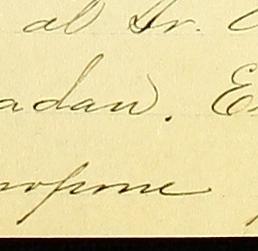 al Sr.
adan. E
ropone